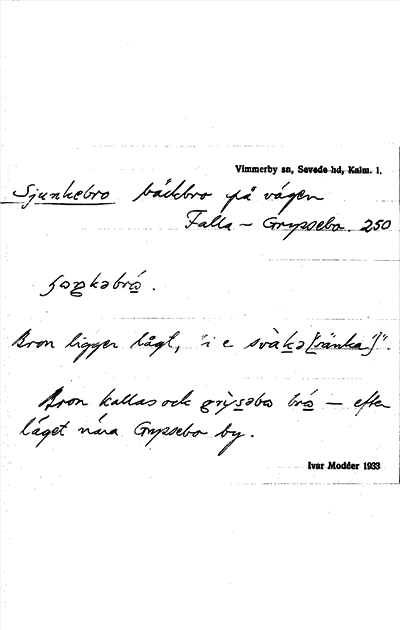 Vimmerby sn, Sevede hd, Kalm. l.
Sjunkebro bäckbro på vägen
Falla – Grypsebo. 250
Bron ligger lågt, "i e svàkə [svänka]".
Bron kallas ock grỳsəbo brå – efter
läget nära Grypsebo by.
Ivar Modéer 1933